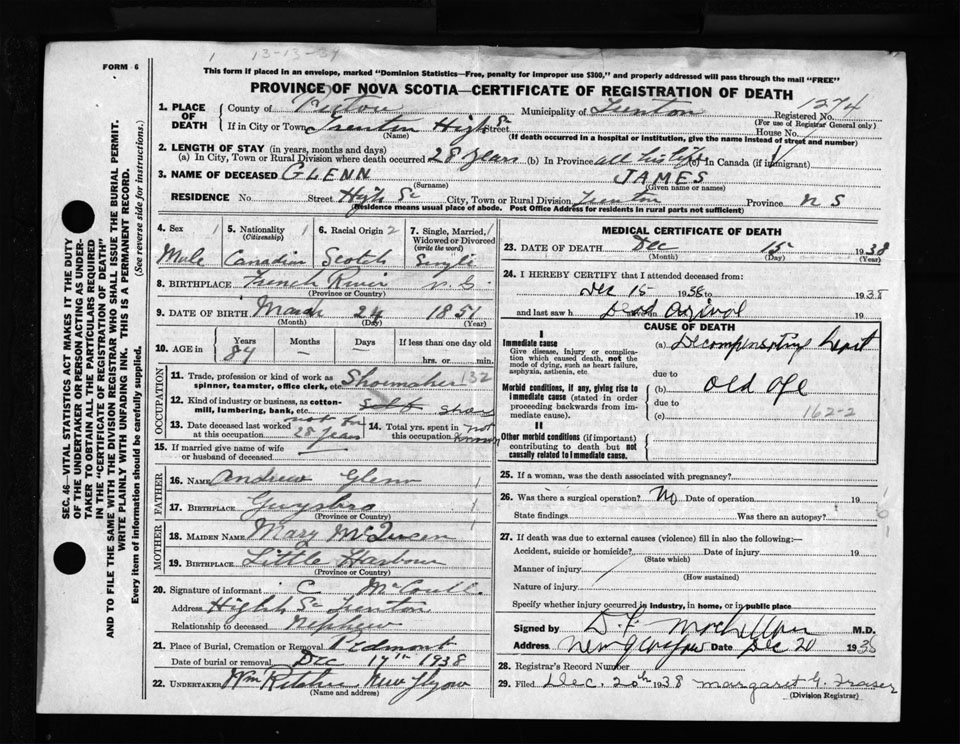 1 13-13-39
FORM 6
This form if placed in an envelope, marked "Dominion Statistics—Free, penalty for improper use $300," and properly addressed will pass through the mail "FREE"
PROVINCE OF NOVA SCOTIA—CERTIFICATE OF REGISTRATION OF DEATH
SEC. 46—VITAL STATISTICS ACT MAKES IT THE DUTY
OF THE UNDERTAKER OR PERSON ACTING AS UNDER-
TAKER TO OBTAIN ALL THE PARTICULARS REQUIRED
IN THE "CERTIFICATE OF REGISTRATION OF DEATH"
AND TO FILE THE SAME WITH THE DIVISION REGISTRAR WHO SHALL ISSUE THE BURIAL PERMIT.
WRITE PLAINLY WITH UNFADING INK. THIS IS A PERMANENT RECORD.
Every item of information should be carefully supplied. (See reverse side for instructions.)
1. PLACE OF DEATH
County of Pictou Municipality of Trenton Registered No. 1274
(For use of Registrar General only)
If in City or Town Trenton High St Street House No.
(Name) (If death occurred in a hospital or institution, give the name instead of street and number)
2. LENGTH OF STAY (in years, months and days)
(a) In City, Town or Rural Division where death occurred 28 years (b) In Province all his life (c) In Canada (if immigrant)
3. NAME OF DECEASED GLENN JAMES
(Surname) (Given name or names)
RESIDENCE No. Street High St City, Town or Rural Division Trenton Province N S
(Residence means usual place of abode. Post Office Address for residents in rural parts not sufficient)
4. Sex 1 5. Nationality 1 (Citizenship) 6. Racial Origin 2 7. Single, Married, 1 Widowed or Divorced (write the word)
Male Canadian Scotch Single
8. BIRTHPLACE French River N. S.
(Province or Country)
9. DATE OF BIRTH March 24 1851
(Month) (Day) (Year)
10. AGE in Years Months Days If less than one day old
84 — — hrs. or min.
OCCUPATION
11. Trade, profession or kind of work as spinner, teamster, office clerk, etc. Shoemaker 132
12. Kind of industry or business, as cotton-mill, lumbering, bank, etc.
13. Date deceased last worked at this occupation 28 years
14. Total yrs. spent in this occupation not known
15. If married give name of wife or husband of deceased
FATHER
16. NAME Andrew Glenn
17. BIRTHPLACE Guysboro
(Province or Country)
MOTHER
18. MAIDEN NAME Mary McQueen
19. BIRTHPLACE Little Harbour
(Province or Country)
20. Signature of informant C
Address High St Trenton
Relationship to deceased Nephew
21. Place of Burial, Cremation or Removal
Date of burial or removal Dec 17th 1938
22. UNDERTAKER Wm Ritchie New Glasgow
(Name and address)
MEDICAL CERTIFICATE OF DEATH
23. DATE OF DEATH Dec 15 1938
(Month) (Day) (Year)
24. I HEREBY CERTIFY that I attended deceased from:
Dec 15 1938 to 1938
and last saw h Dead on arrival 19
CAUSE OF DEATH
I
Immediate cause
Give disease, injury or complication which caused death, not the mode of dying, such as heart failure, asphyxia, asthenia, etc
(a) Decompensating heart
due to
Morbid conditions, if any, giving rise to immediate cause (stated in order proceeding backwards from immediate cause).
(b) Old age
due to
(c) 162-2
II
Other morbid conditions (if important) contributing to death but not causally related to immediate cause.
25. If a woman, was the death associated with pregnancy?
26. Was there a surgical operation? No Date of operation 19
State findings Was there an autopsy?
27. If death was due to external causes (violence) fill in also the following:—
Accident, suicide or homicide? Date of injury 19
(State which)
Manner of injury
(How sustained)
Nature of injury
Specify whether injury occurred in industry, in home, or in public place
Signed by M.D.
Address New Glasgow Date Dec 20 1938
28. Registrar's Record Number
29. Filed Dec. 20th 1938 Margaret G. Fraser
(Division Registrar)